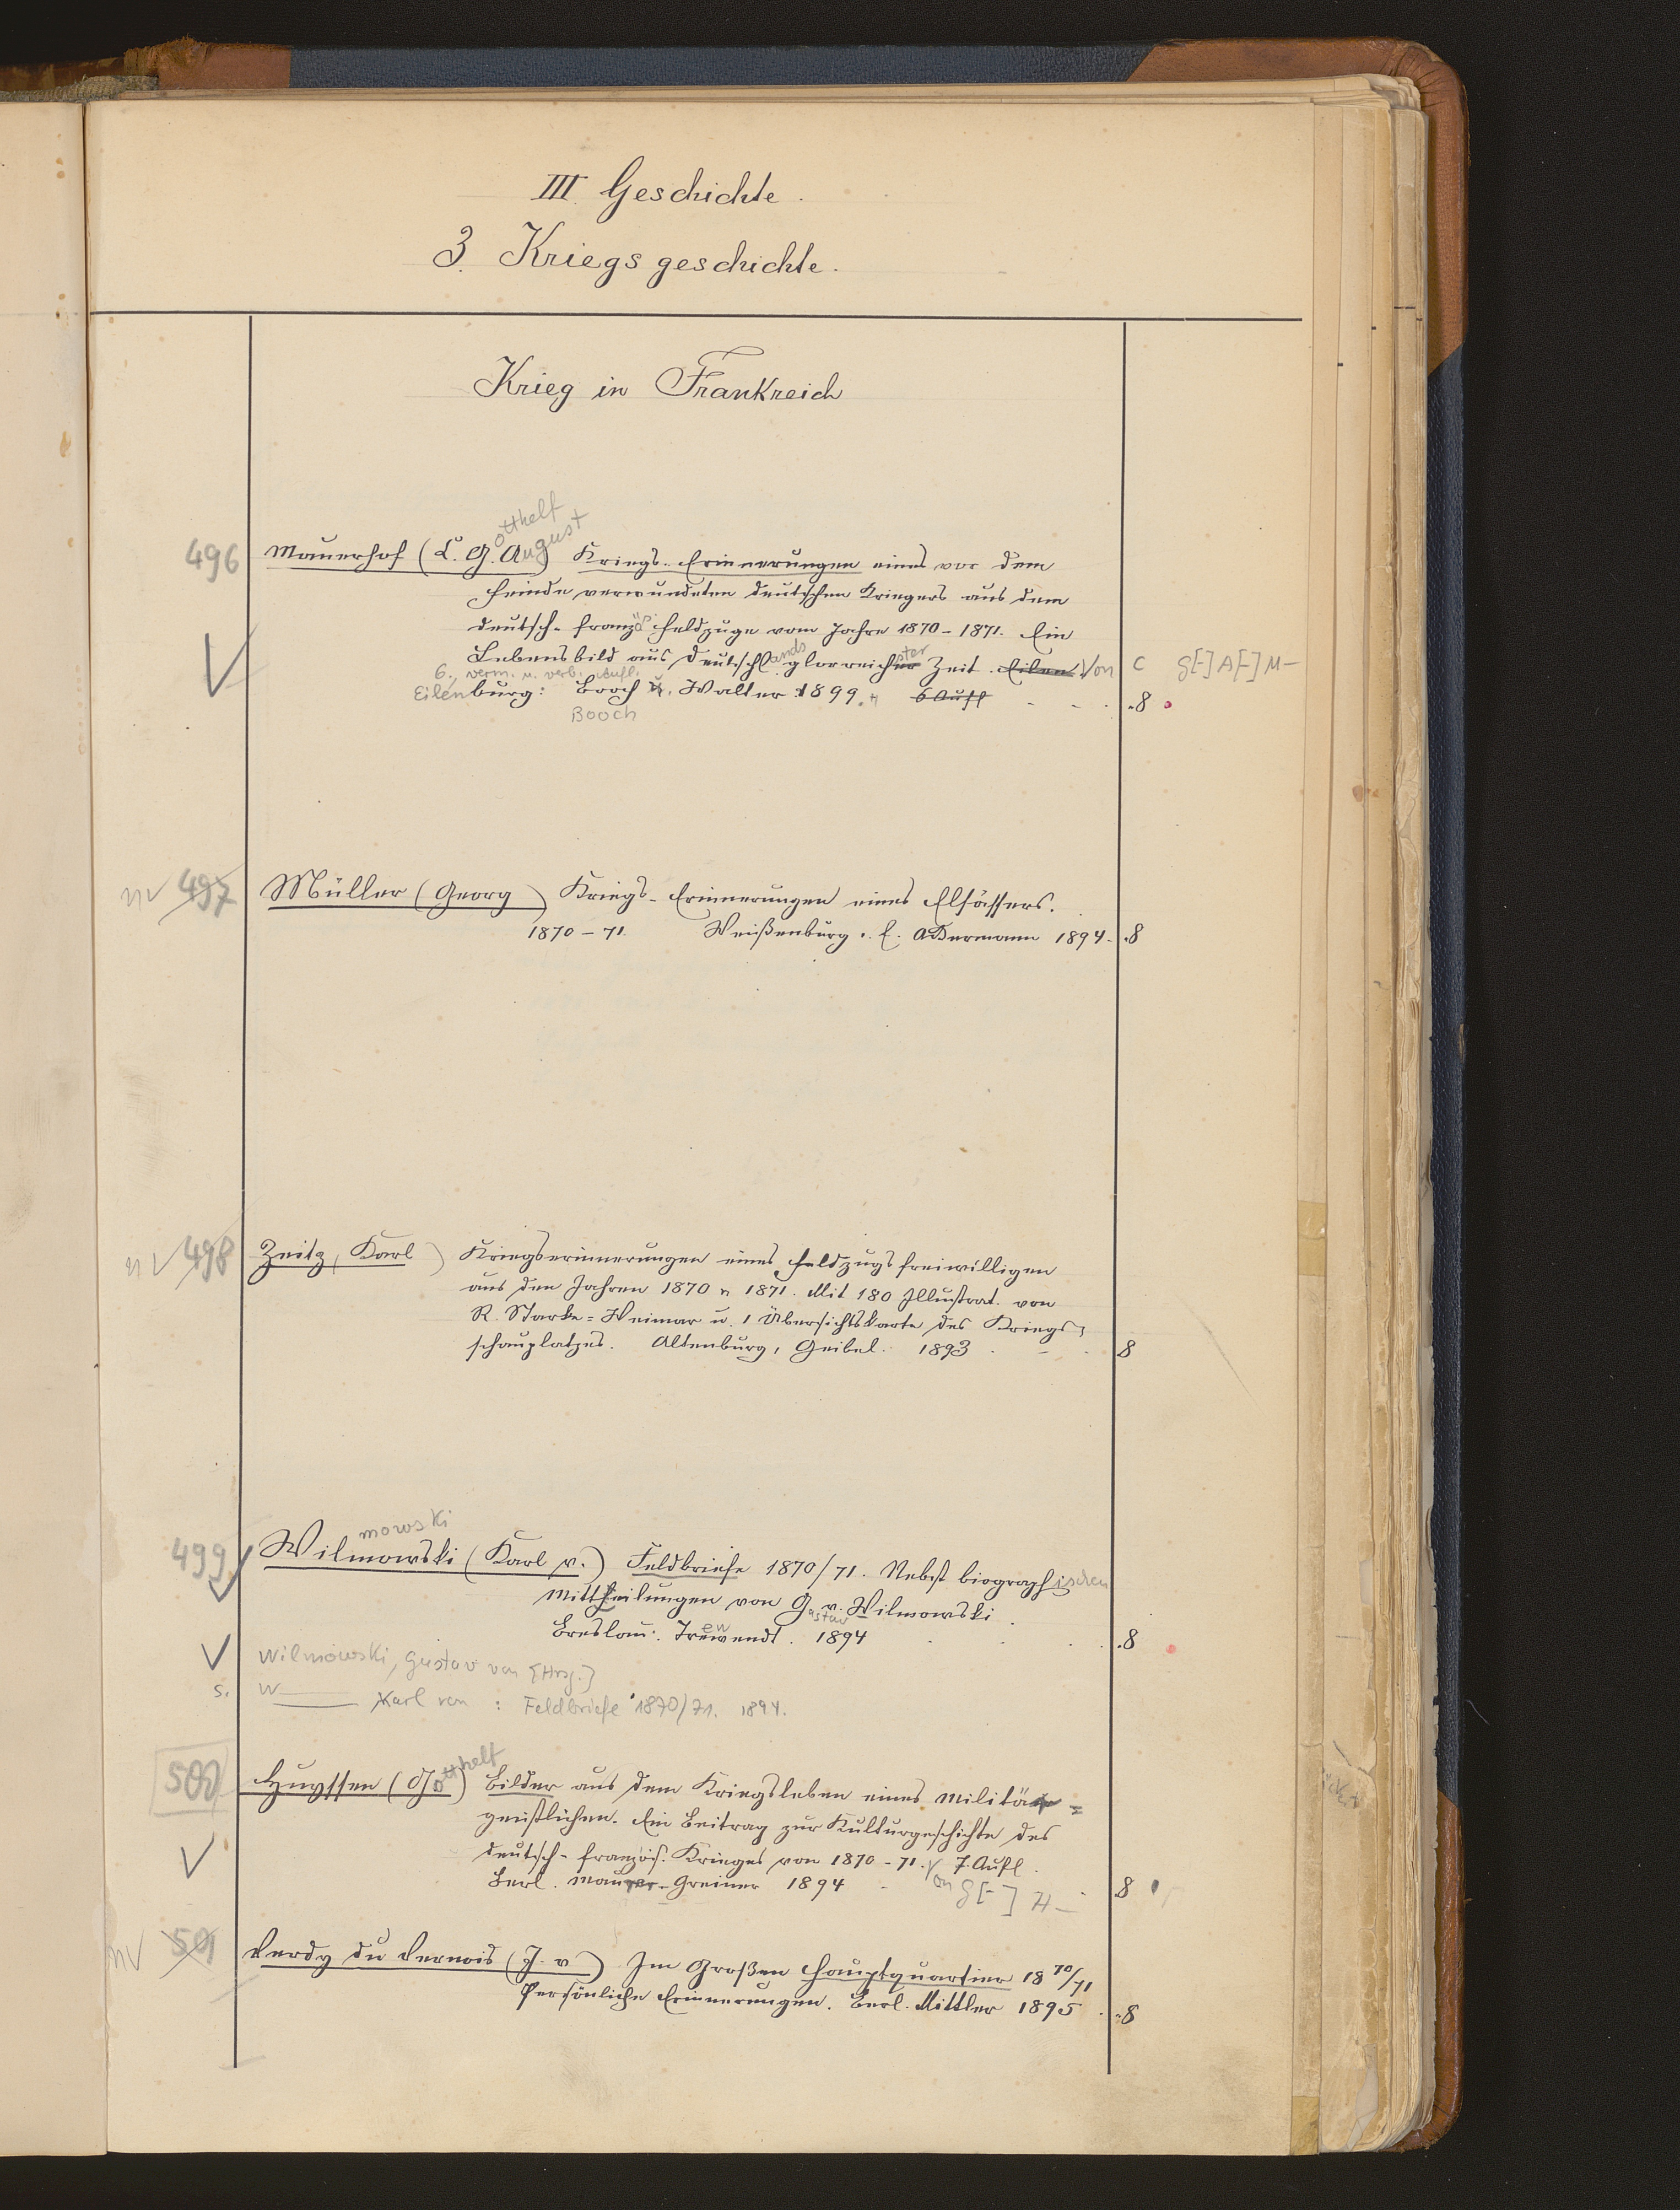 III Geschichte.
3. Kriegsgeschichte.
Krieg in Frankreich
otthelf
ugust
496 Mauerhof (L. G. A) Kriegs-Erinnerungen eines vor dem
Feinde verwundeten deutschen Kriegers aus dem
deutsch-französ. Feldzuge vom Jahre 1870-1871. Ein
Lebensbild aus Deutschlands glorreichster Zeit. Eilen Von C G[-] A[-] M-
6., verm. u. verb. Aufl.
Eilenburg: Booch u. Walter 1899. 6 Aufl .8
Booch
nv 497 Müller (Georg) Kriegs-Erinnerungen eines Elsässers.
1870-71. Weißenburg. C. Ackermann 1894. .8
nv 498 Zeitz, Karl) Kriegserinnerungen eines Feldzugsfreiwilligen
aus den Jahren 1870 u 1871. Mit 180 Illustrat. von
R. Starke=Weimar u. 1 Übersichtskarte des Kriegs=
schauplatzes. Altenburg, Geibel. 1893 8
mowski
499 Wilmowski (Karl v.) Feldbriefe 1870/71. Nebst biographischen
Mittheilungen von G. v. Wilmowski.
astav
ew
Breslau: Trewendt. 1894 .8
Wilmowski, Gustav von [Hrsg.]
s. W Karl von : Feldbriefe 1870/71. 1894.
500 Huyssen (Gotthelf) Bilder aus dem Kriegsleben eines Militär=
geistlichen. Ein Beitrag zur Kulturgeschichte des
deutsch-französ. Krieges von 1870-71. 7. Aufl.
Berl. Maurer-Greiner 1894 Von G[-] H- 8
nv 501 Verdy du Vernois (J. v) Im Großen Hauptquartier 1870/71
Persönliche Erinnerungen. Berl. Mittler 1895 .8